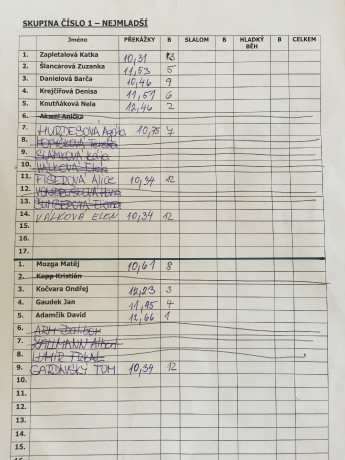 SKUPINA ČÍSLO 1 – NEJMLADŠÍ
Jméno PŘEKÁŽKY B SLALOM B HLADKÝ BĚH B CELKEM
1. Zapletalová Katka 10,31 13
2. Šlancarová Zuzanka 11,53 5
3. Danielová Barča 10,46 9
4. Krejčířová Denisa 11,51 6
5. Koutňáková Nela 12,46 2
6. Akwei Anička
7. HURDESOVÁ 10,75 7
8.
9.
10. VALKOVÁ
11. FIŠEROVÁ ALICE 10,34 12
12.
13.
14. VALKOVÁ ELEN 10,34 12
15.
16.
17.
1. Mozga Matěj 10,61 8
2. Kopp Kristián
3. Kočvara Ondřej 12,23 3
4. Gaudek Jan 11,95 4
5. Adamčík David 12,66 1
6.
7.
8.
9. GARDAVSKÝ TOM 10,34 12
10.
11.
12.
13.
14.
15.
16.